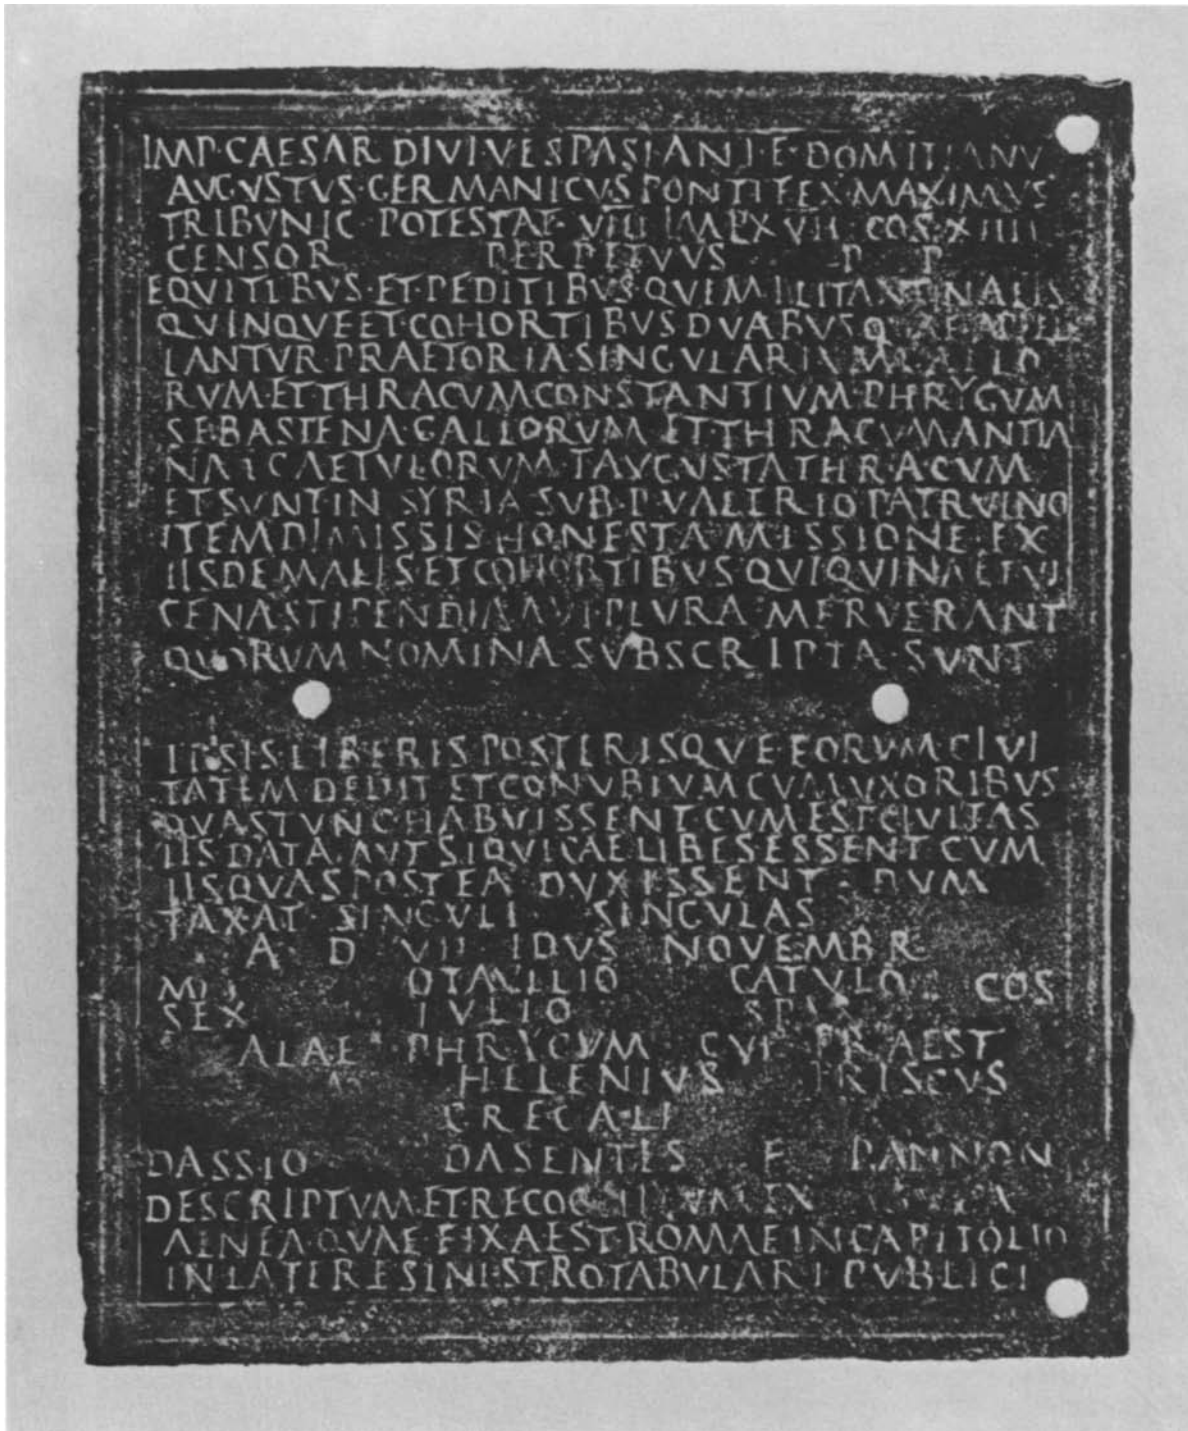 IMP·CAESAR DIVI·VESPASIANI·F·DOMITIANV
AVGVSTVS·GERMANICVS PONTIFEX·MAXIMVS
TRIBVNIC·POTESTAT·VIII IMP·XVII COS·XIIII
CENSOR PERPETVVS P P
EQVITIBVS·ET·PEDITIBVS·QVI MILITANT IN ALIS
QVINQVE ET·COHORTIBVS DVABVS QVAE APPEL
LANTVR·PRAETORIA·SINGVLARIVM GALLO
RVM·ET THRACVM CONSTANTIVM·PHRYGVM
SEBASTENA·GALLORVM ET·THRACVM ANTIA
NA I GAETVLORVM I AVGVSTA THRACVM
ET SVNT IN SYRIA SVB·P VALERIO PATRVINO
ITEM DIMISSIS HONESTA MISSIONE EX
IISDEM ALIS ET COHORTIBVS QVI QVINA ET VI
CENA STIPENDIA AVT PLVRA MERVERANT
QVORVM NOMINA SVBSCRIPTA SVNT
IPSIS·LIBERIS POSTERISQVE EORVM CIVI
TATEM DEDIT ET CONVBIVM CVM VXORIBVS
QVAS TVNC HABVISSENT CVM EST CIVITAS
IIS DATA AVT SIQVI CAELIBES ESSENT CVM
IIS QVAS POSTEA DVXISSENT DVM
TAXAT SINGVLI SINGVLAS
A D VII IDVS NOVEMBR
OTACILIO CATVLO COS
SEX IVLIO
ALAE PHRYGVM CVI PRAEST
HELENIVS PRISCVS
GREGALI
DASSIO DASENTIS F PANNON
DESCRIPTVM·ET RECOGNITVM EX
AENEA·QVAE FIXA EST·ROMAE IN CAPITOLIO
IN LATERE SINISTRO TABVLARI PVBLICI